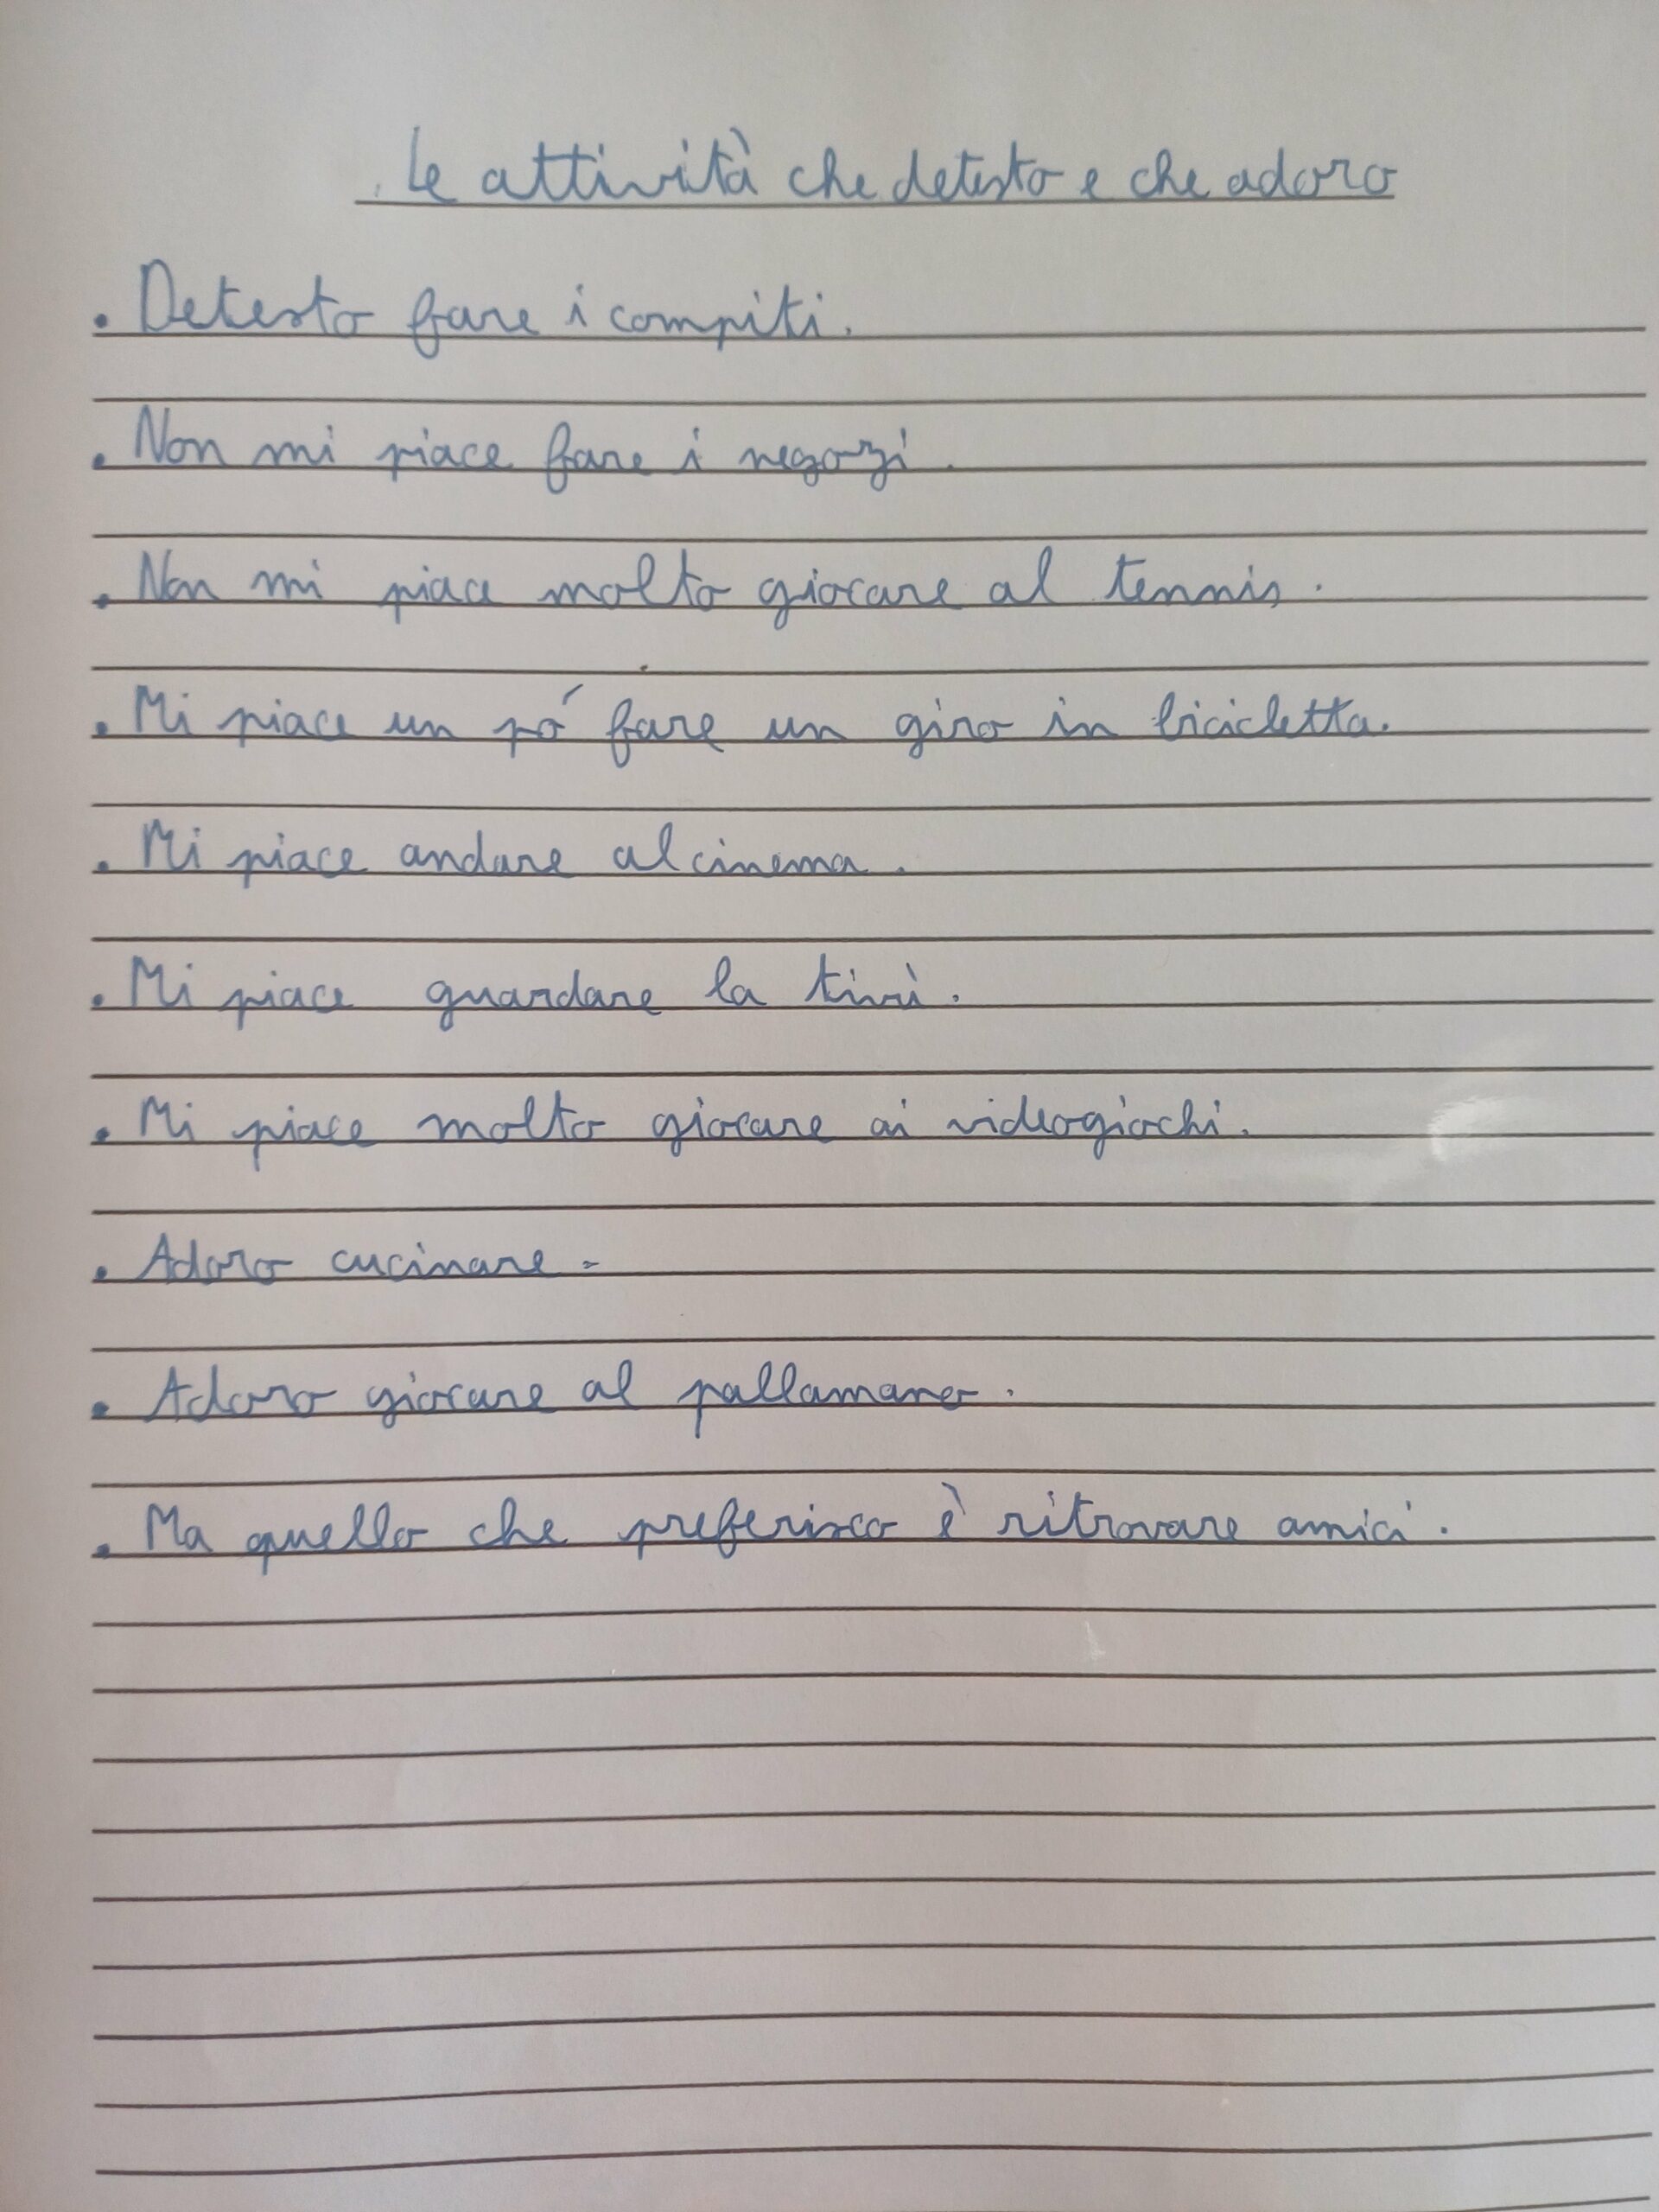 Le attività che detesto e che adoro
. Detesto fare i compiti.
. Non mi piace fare i negozi.
. Non mi piace molto giocare al tennis.
. Mi piace un pó fare un giro in bicicletta.
. Mi piace andare al cinema.
. Mi piace guardare la tivù.
. Mi piace molto giocare ai videogiochi.
. Adoro cucinare.
. Adoro giocare al pallamano.
. Ma quello che preferisco è ritrovare amici.